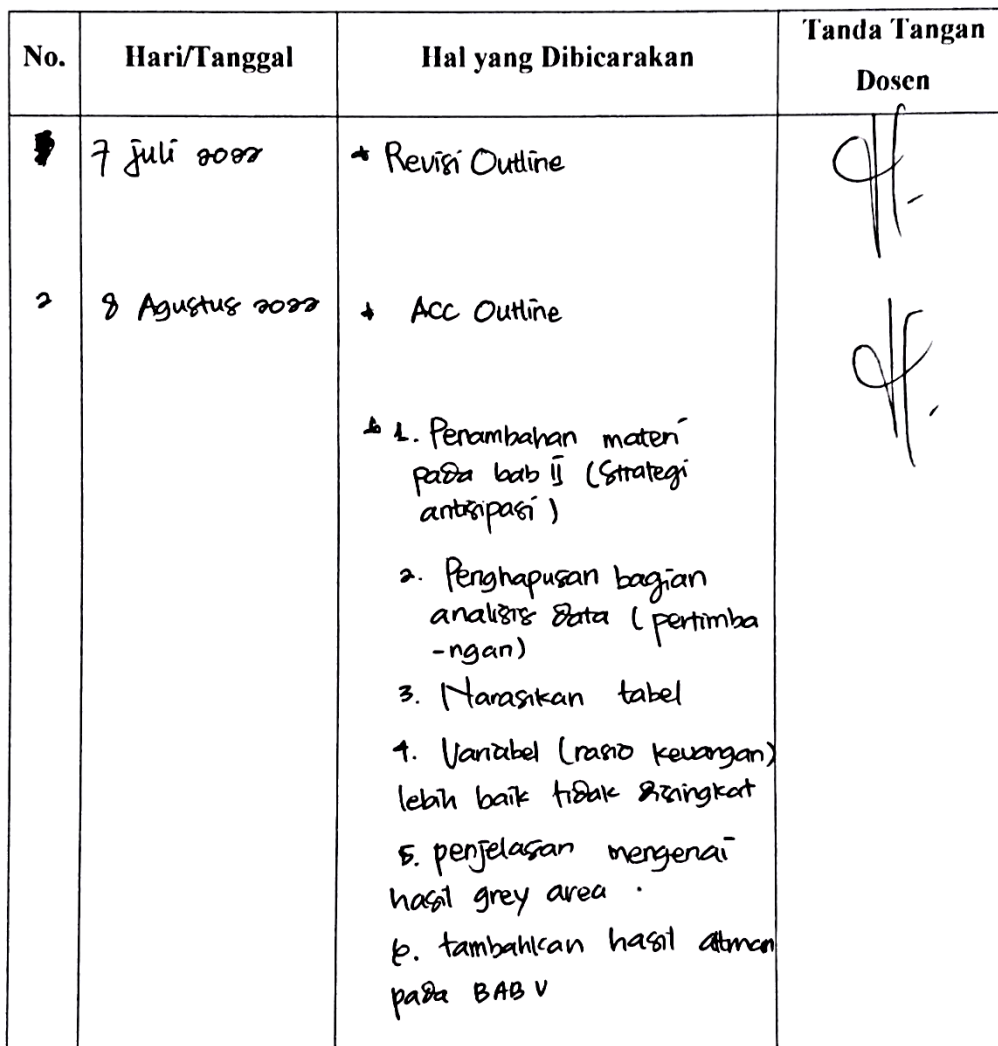 No. Hari/Tanggal Hal yang Dibicarakan Tanda Tangan
Dosen
7 juli 2022 * Revisi Outline
2 8 Agustus 2022 * ACC Outline
* 1. Penambahan materi
pada bab II (Strategi
antisipasi)
2. Penghapusan bagian
analisis data (pertimba
-ngan)
3. Narasikan tabel
4. Variabel (rasio keuangan)
lebih baik tidak disingkat
5. penjelasan mengenai
hasil grey area .
6. tambahkan hasil altman
pada BAB V